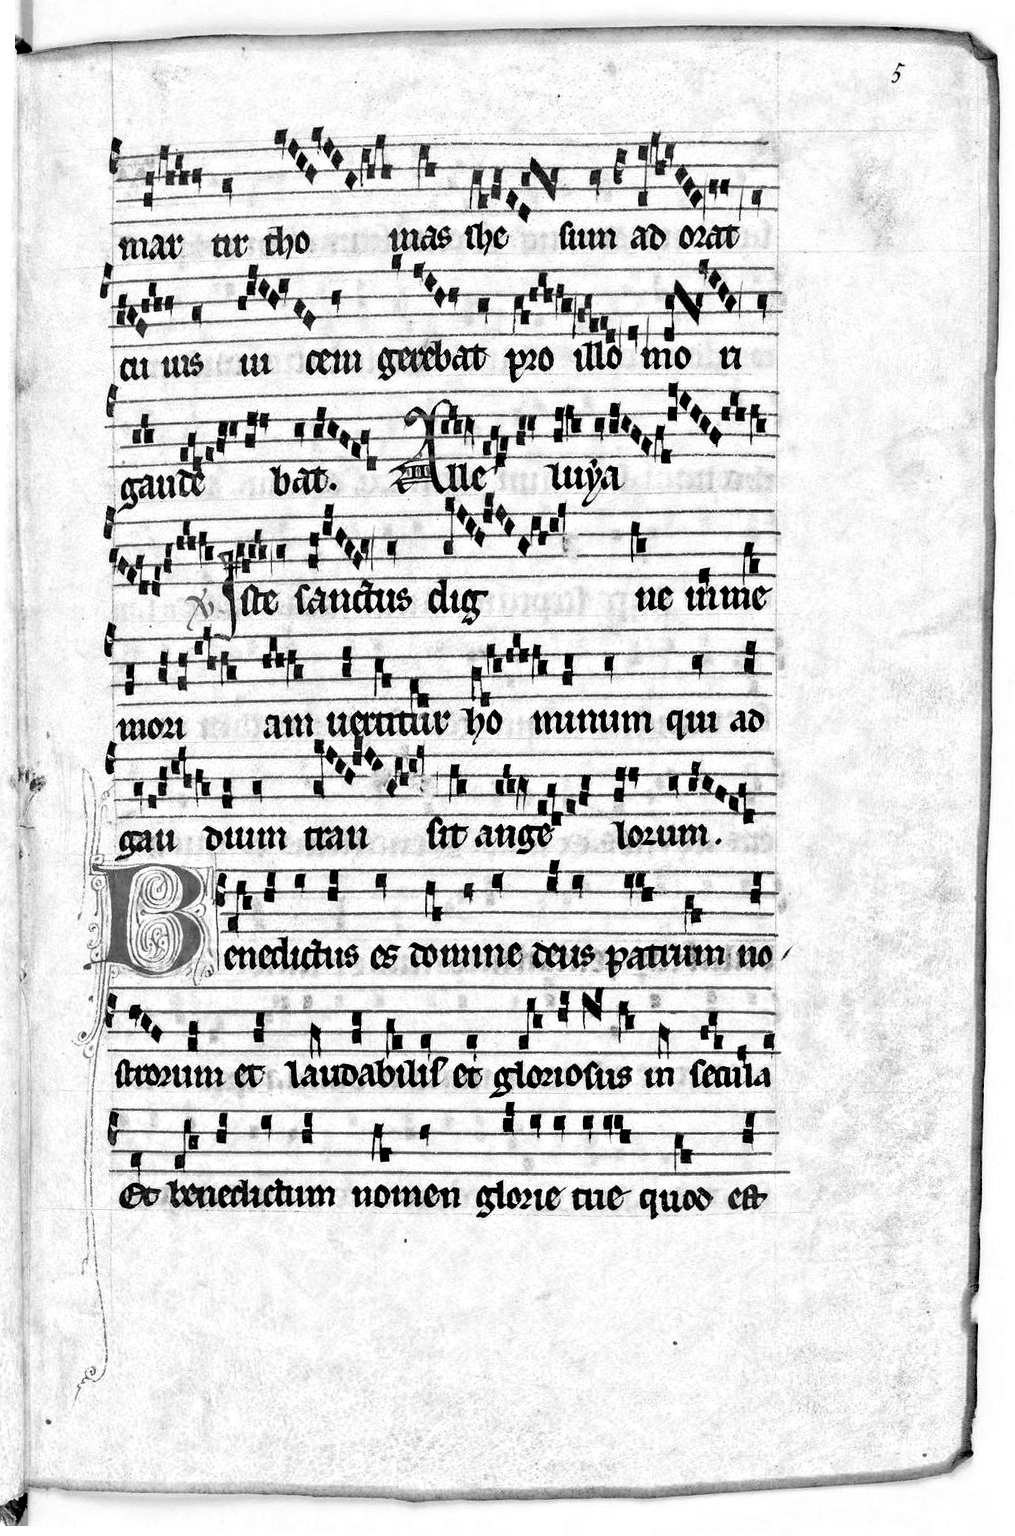 5
mar tir tho mas ihe sum ad orat
cu ius ui cem gerebat pro illo mo ri
gaude bat. Alle luẏa
℣. Iste sanctus dig ne in me
mori am uertitur ho minum qui ad
gau dium tran sit ange lorum.
Benedictus es domine deus patrum no
strorum et laudabilis et gloriosus in secula
Et benedictum nomen glorie tue quod est